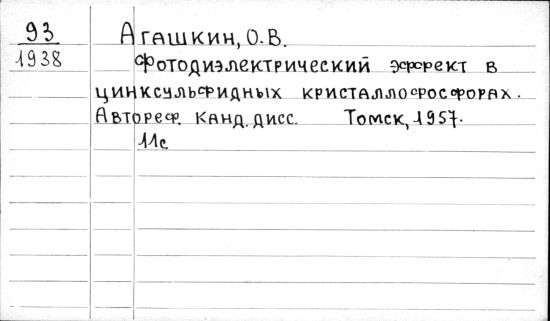 93 Агашкин, О.В.
1938 Фотодиэлектрический эффект в
цинксульфидных кристаллофосфорах.
Автореф. канд. дисс. Томск, 1957.
11с